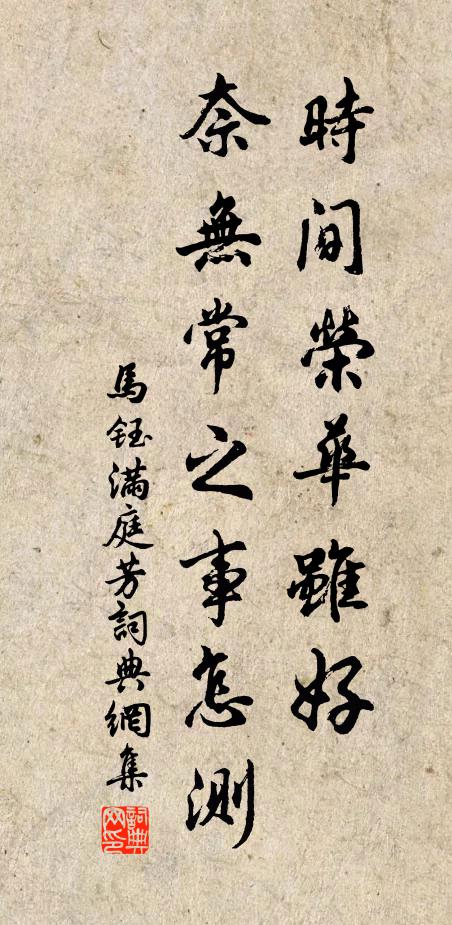 時間榮華雖好
奈無常之事怎測
馬鈺滿庭芳詞典網集
詞典網印